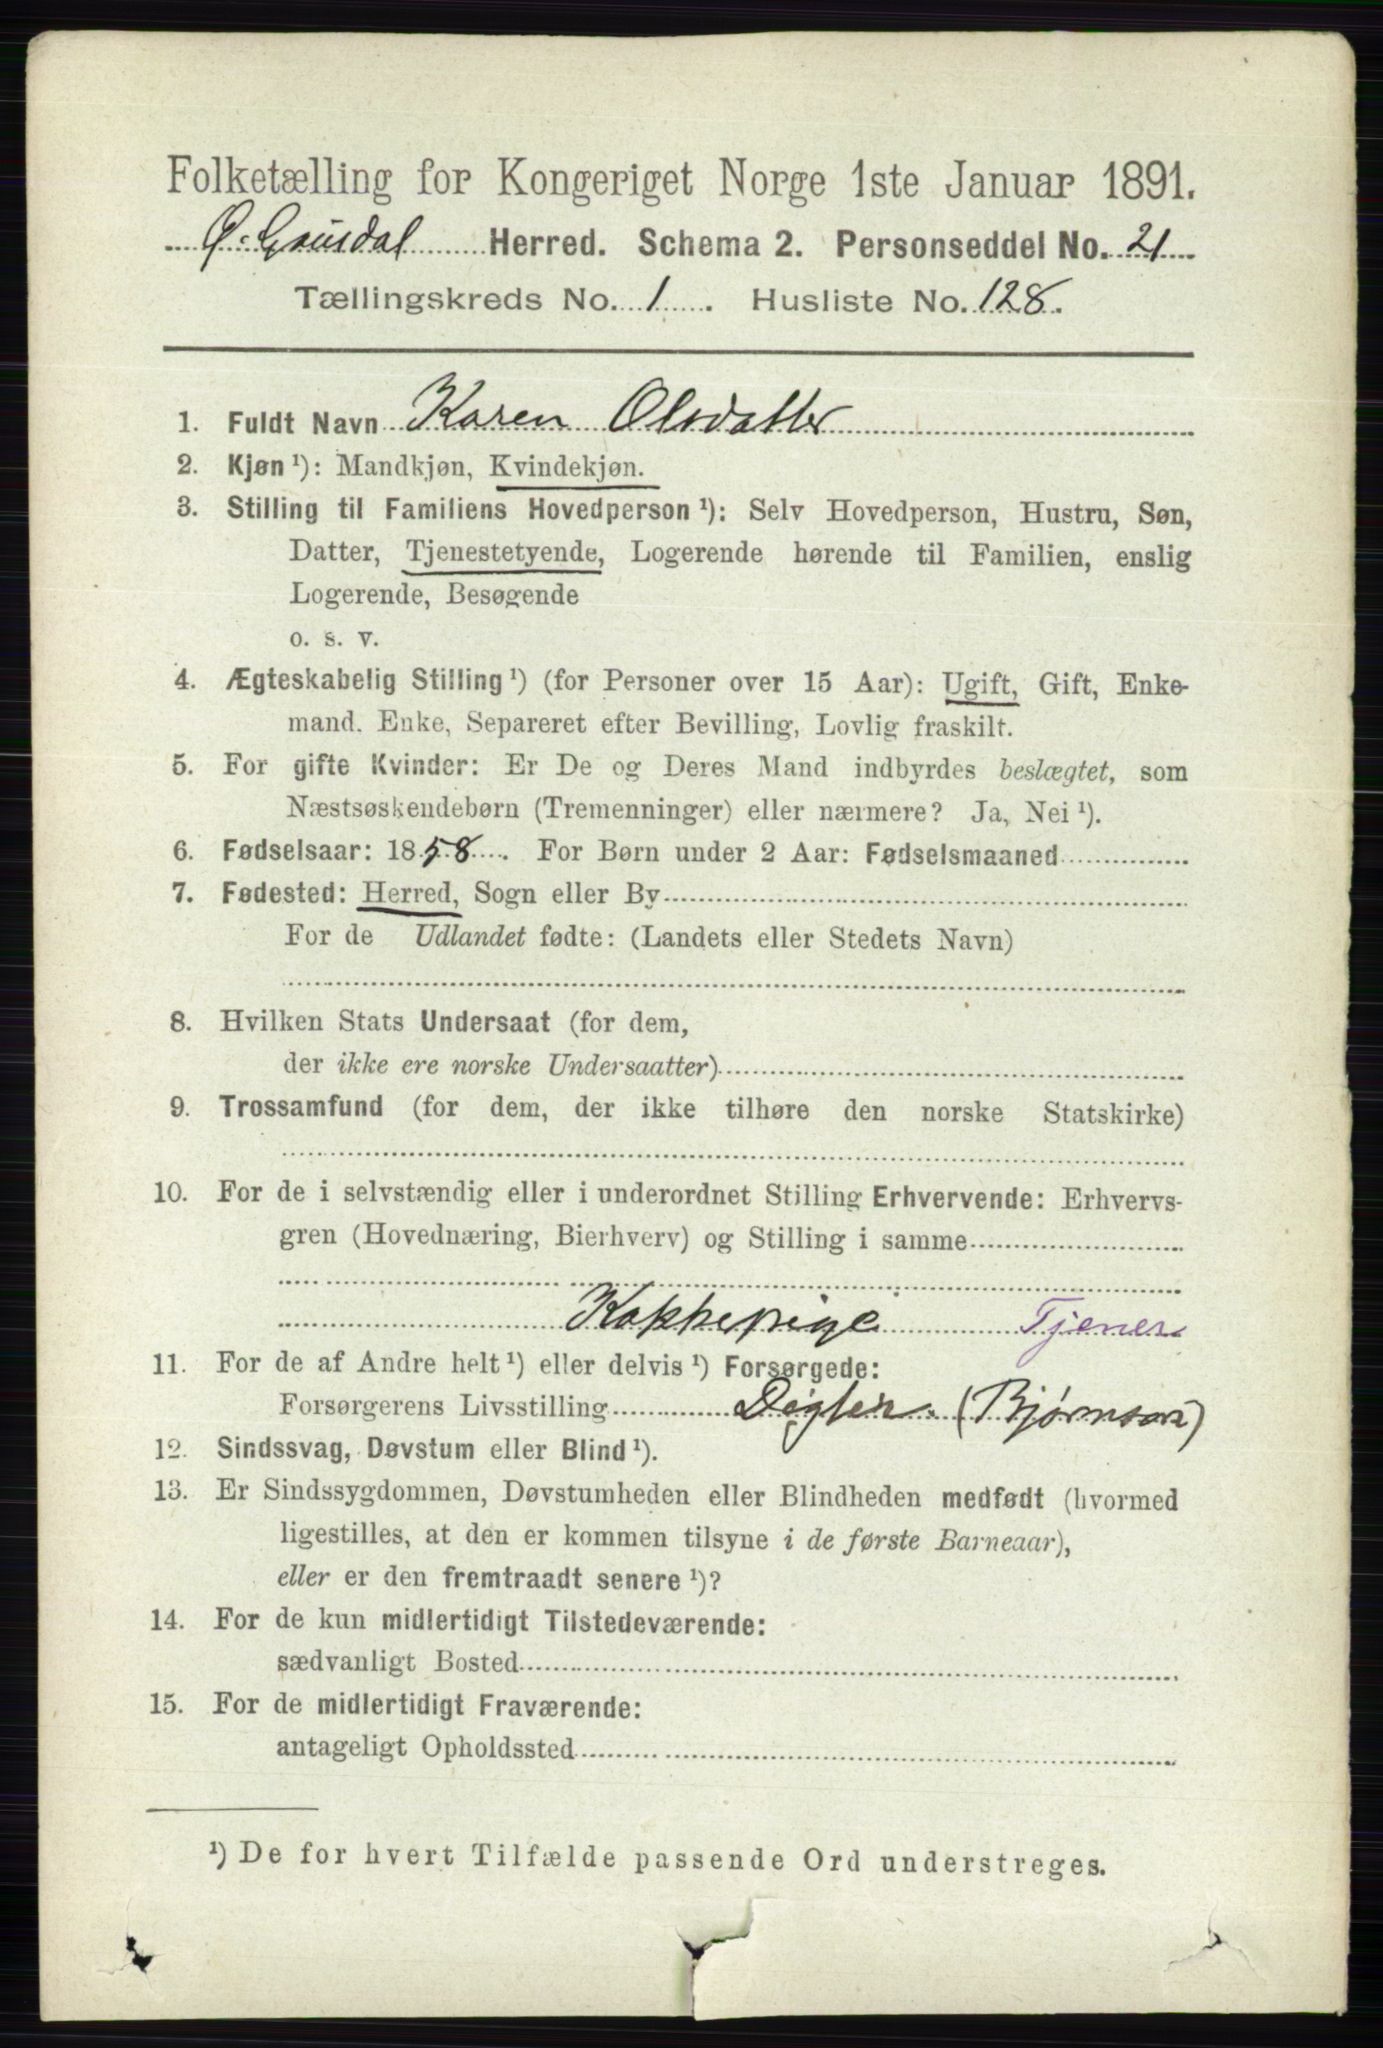 Folketælling for Kongeriget Norge 1ste Januar 1891.
Ø. Gausdal Herred. Schema 2. Personseddel No. 21
Tællingskreds No. 1. Husliste No. 128.
1. Fuldt Navn Karen Olsdatter
2. Kjøn ¹): Mandkjøn, Kvindekjøn.
3. Stilling til Familiens Hovedperson ¹): Selv Hovedperson, Hustru, Søn,
Datter, Tjenestetyende, Logerende hørende til Familien, enslig
Logerende, Besøgende
o. s. v.
4. Ægteskabelig Stilling ¹) (for Personer over 15 Aar): Ugift, Gift, Enke-
mand. Enke, Separeret efter Bevilling, Lovlig fraskilt.
5. For gifte Kvinder: Er De og Deres Mand indbyrdes beslægtet, som
Næstsøskendebørn (Tremenninger) eller nærmere? Ja, Nei ¹).
6. Fødselsaar: 1858. For Børn under 2 Aar: Fødselsmaaned
7. Fødested: Herred, Sogn eller By
For de Udlandet fødte: (Landets eller Stedets Navn)
8. Hvilken Stats Undersaat (for dem,
der ikke ere norske Undersaatter)
9. Trossamfund (for dem, der ikke tilhøre den norske Statskirke)
10. For de i selvstændig eller i underordnet Stilling Erhvervende: Erhvervs-
gren (Hovednæring, Bierhverv) og Stilling i samme
Kokkepige Tjener
11. For de af Andre helt ¹) eller delvis ¹) Forsørgede:
Forsørgerens Livsstilling Digter. (Bjørnson)
12. Sindssvag, Døvstum eller Blind ¹).
13. Er Sindssygdommen, Døvstumheden eller Blindheden medfødt (hvormed
ligestilles, at den er kommen tilsyne i de første Barneaar),
eller er den fremtraadt senere ¹)?
14. For de kun midlertidigt Tilstedeværende:
sædvanligt Bosted
15. For de midlertidigt Fraværende:
antageligt Opholdssted
¹) De for hvert Tilfælde passende Ord understreges.